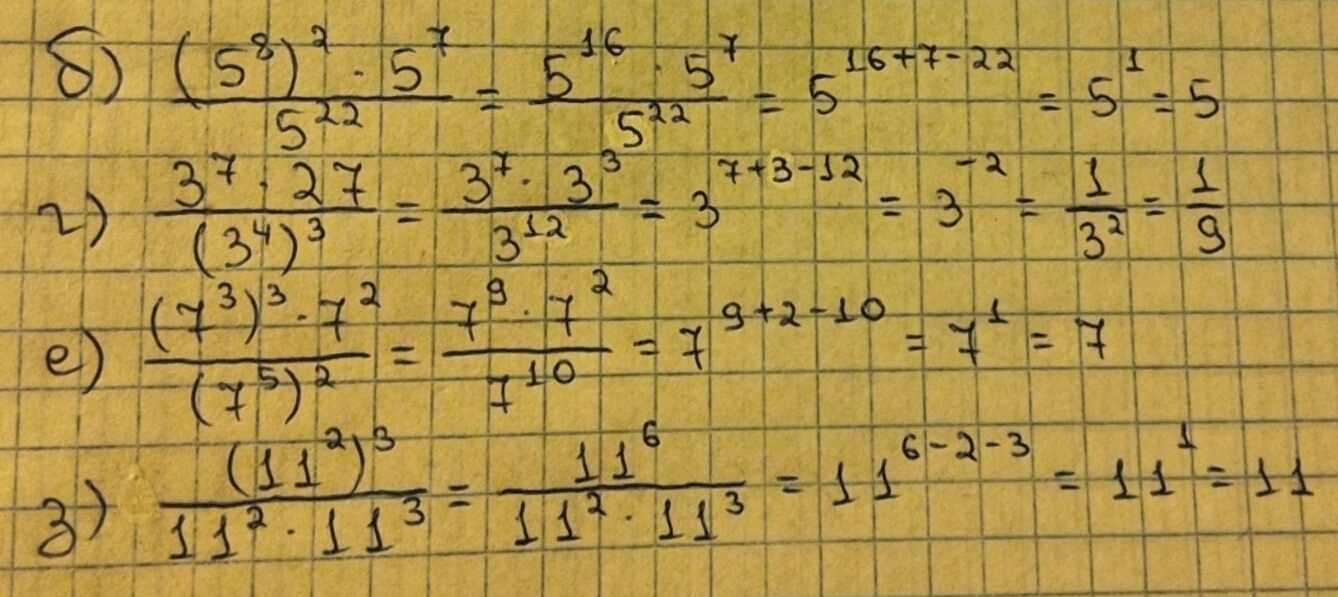 б) \frac{(5^8)^2 · 5^7}{5^{22}} = \frac{5^{16} · 5^7}{5^{22}} = 5^{16+7-22} = 5^1 = 5
г) \frac{3^7 · 27}{(3^4)^3} = \frac{3^7 · 3^3}{3^{12}} = 3^{7+3-12} = 3^{-2} = \frac{1}{3^2} = \frac{1}{9}
е) \frac{(7^3)^3 · 7^2}{(7^5)^2} = \frac{7^9 · 7^2}{7^{10}} = 7^{9+2-10} = 7^1 = 7
з) \frac{(11^2)^3}{11^2 · 11^3} = \frac{11^6}{11^2 · 11^3} = 11^{6-2-3} = 11^1 = 11